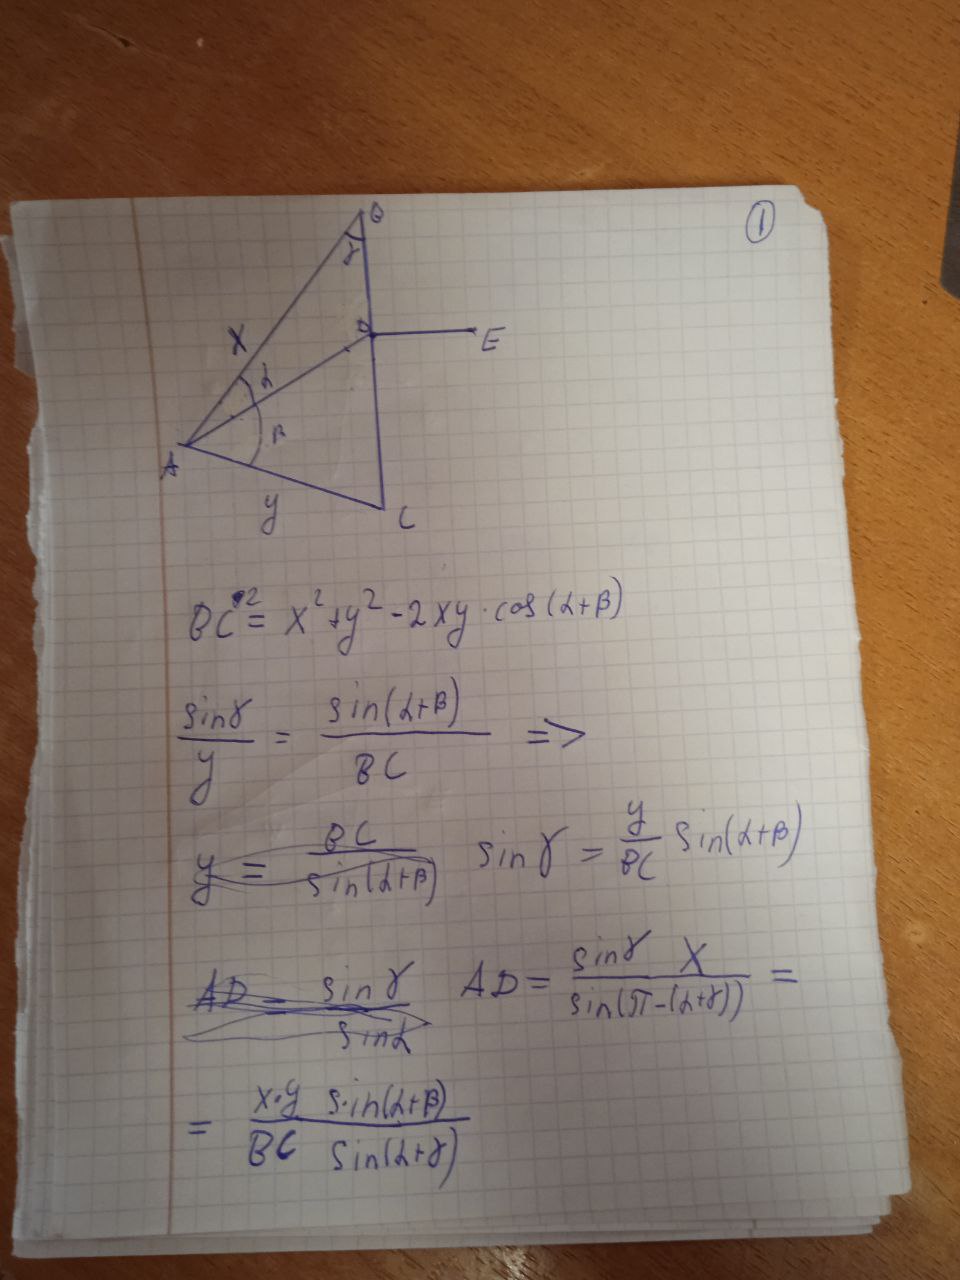 ①
B
γ
D
E
X
α
β
A
y
C
BC² = x² + y² - 2xy · cos(α+β)
sinγ / y = sin(α+β) / BC =>
y = BC / sin(α+β) sinγ = y / BC sin(α+β)
AD = sinγ / sinα AD = sinγ X / sin(π-(α+γ)) =
= x·y sin(α+β) / BC sin(α+γ)